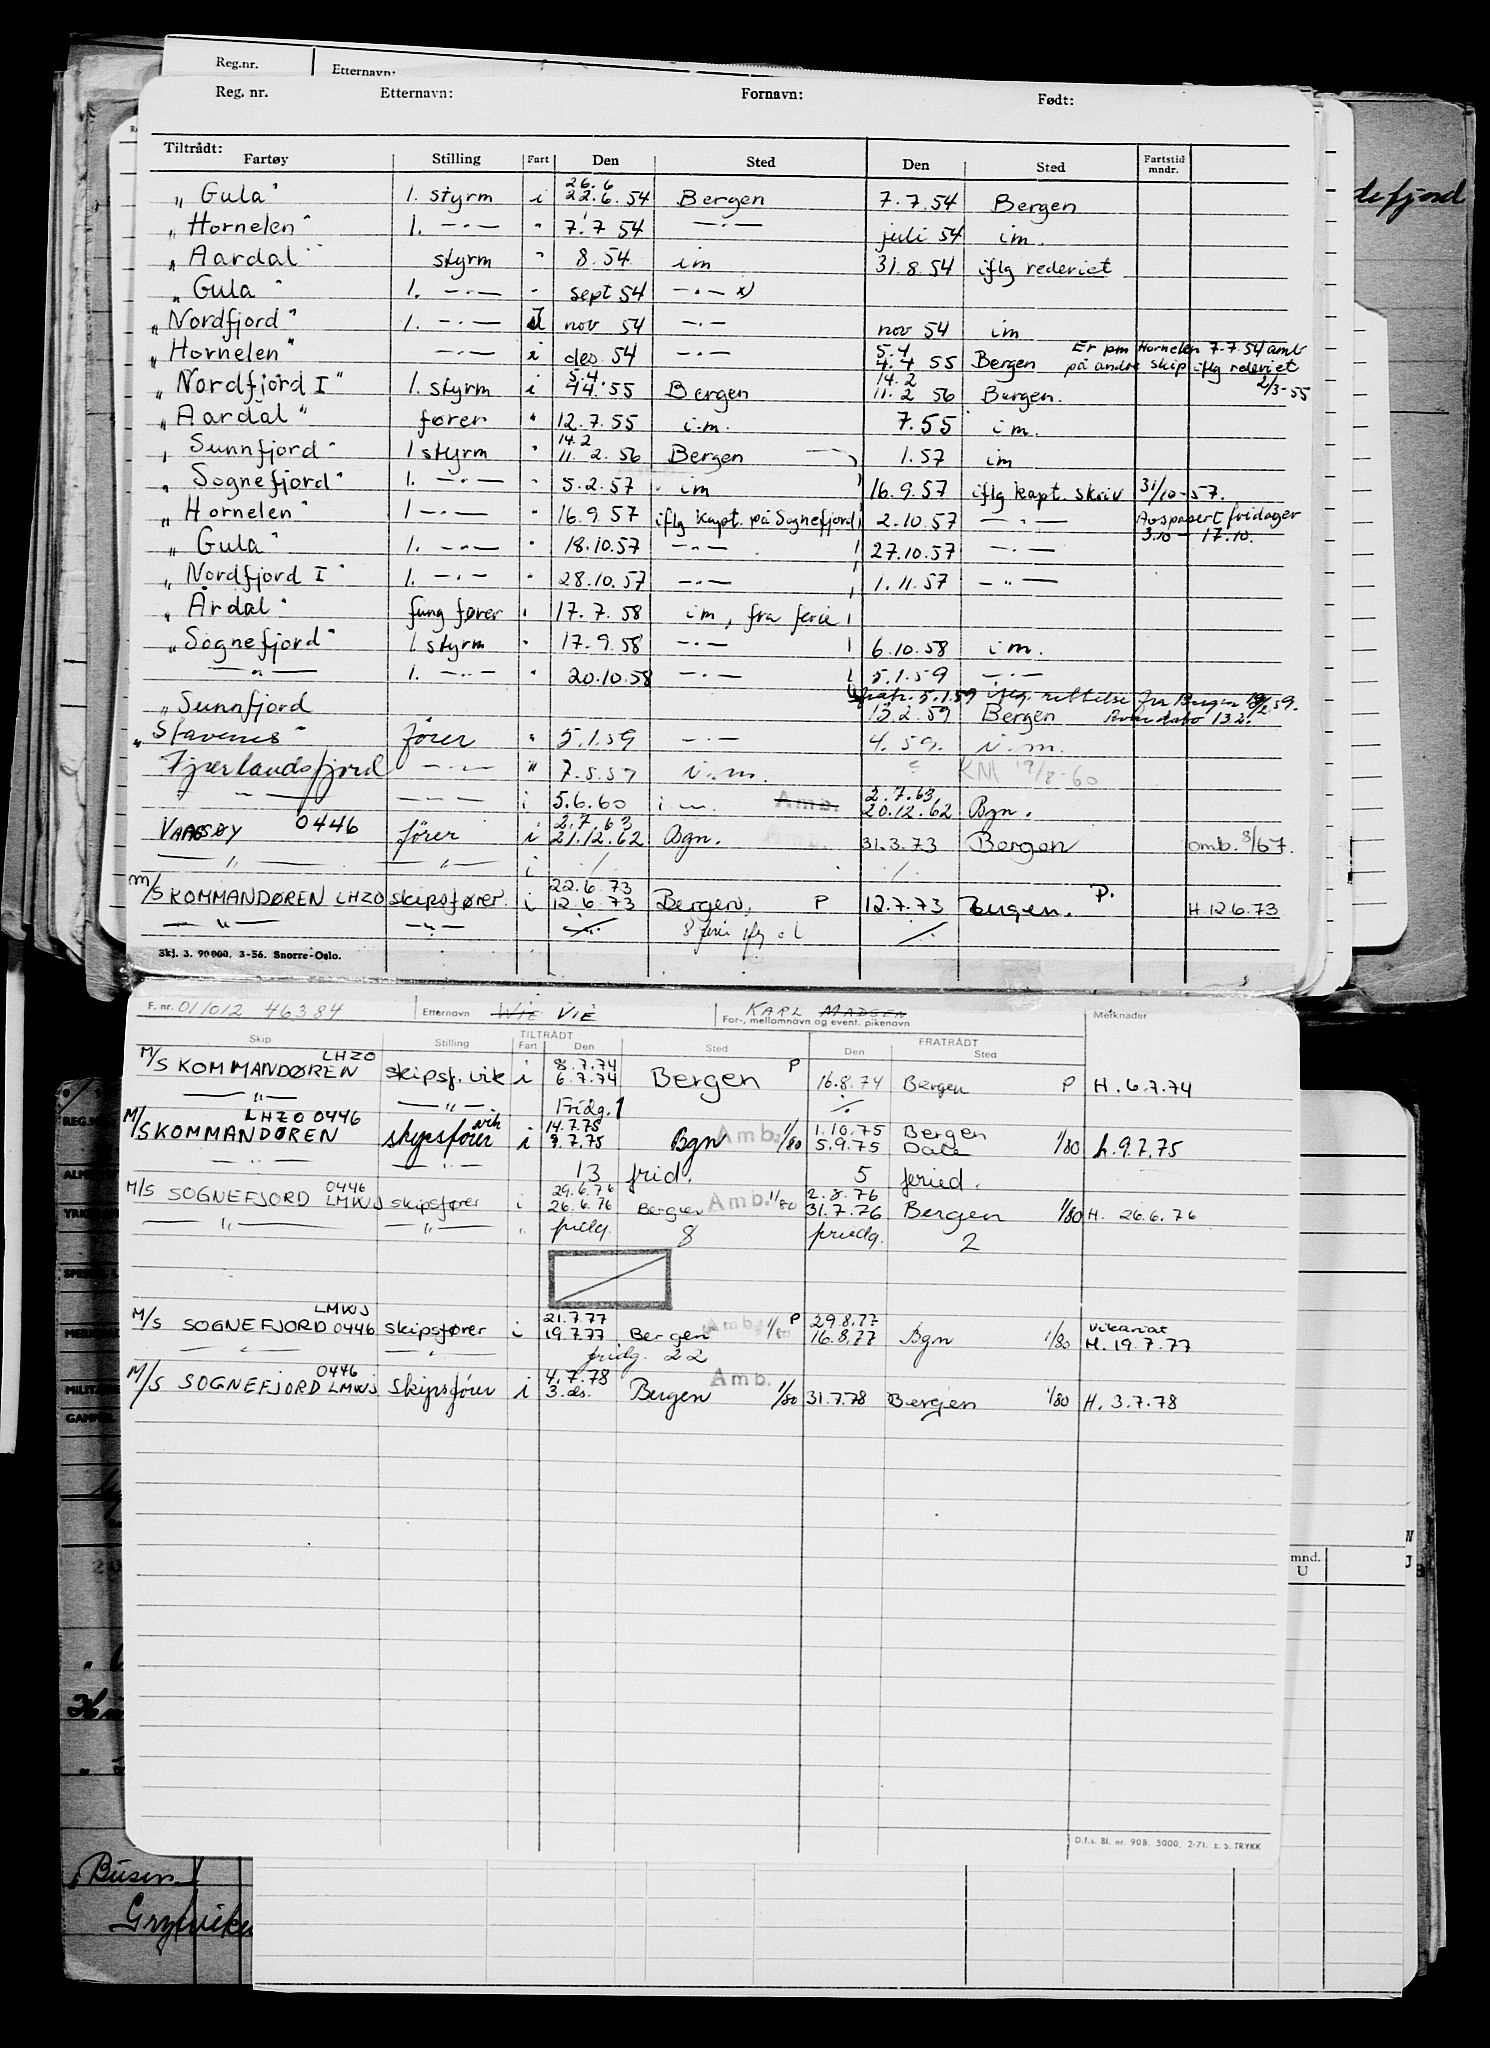 Reg.nr. Etternavn:
Reg. nr. Etternavn: Fornavn: Født:
Tiltrådt:
Fartøy Stilling Fart Den Sted Den Sted Fartstid mndr.
26.6
„ Gula" 1. styrm i 22.6.54 Bergen 7.7.54 Bergen
„ Hornelen" 1. —·— " 7.7 54 —·— juli 54 im.
„ Aardal" styrm " 8.54 im 31.8.54 iflg rederiet
„ Gula " 1. —·— " sept 54 —·— x)
„ Nordfjord" 1. —·— nov 54 —·— nov 54 im
5.4 Er pm Hornelen 7.7.54 amb
„ Hornelen" —·— i des. 54 —·— 4.4 55 Bergen på andre skip iflg rederiet
5.4. 14.2 2/3-55
„ Nordfjord I" 1. styrm i 44.55 Bergen 11.2 56 Bergen.
„ Aardal " fører " 12.7.55 i.m. 7.55 im.
14.2
„ Sunnfjord" 1 styrm " 11.2.56 Bergen 1.57 im
„ Sognefjord" 1. —·— " 5.2.57 im 16.9.57 iflg kapt. skriv 31/10-57.
„ Hornelen" 1 —·— " 16.9.57 iflg kapt. på Sognefjord 2.10.57 —·— Avspasert fridager
3.10 - 17.10.
„ Gula" 1. —·— " 18.10.57 —·— 27.10.57 —·—
„ Nordfjord I" 1. —·— " 28.10.57 —·— 1.11.57 —·—
„ Årdal" fung fører " 17.7.58 im, fra ferie
„ Sognefjord" 1. styrm " 17.9.58 —·— 6.10.58 im.
—"— 1. —·— " 20.10.58 —·— 5.1.59 —·—
fratr. 5.1.59 iflg. rettelse fra Bergen
„ Sunnfjord 13.2.59 Bergen
„ Stavenes" fører " 5.1.59 —·— 4.59. i.m.
Fjærlandsfjord —·— " 7.5.59 i.m. ? KM 19/8-60
2.7.63
—"— —·— i 5.6.60 i m. Amb. 20.12.62 Bgn.
2.7.63
VAAGSØY 0446 fører i 21.12.62 Bgn. Amb. 31.3.73 Bergen omb. 8/67.
—"— —"— i
22.6.73
M/S KOMMANDØREN LHZO skipsfører. i 12.6.73 Bergen. P 12.7.73 Bergen. P. H. 12.6.73
—"— —"— 8 ferie
Skj. 3. 90000. 3-56. Snorre-Oslo.
F. nr. 011012 46384 Etternavn WIE VIE KARL MADSEN
For-, mellomnavn og event. pikenavn Merknader
TILTRÅDT FRATRÅDT
Skip Stilling Fart Den Sted Den Sted
LHZO 8.7.74
M/S KOMMANDØREN skipsf. vik i 6.7.74 Bergen P 16.8.74 Bergen P H. 6.7.74
—"— —"— Fridg. 1 ·/.
LHZO 0446 vik 14.7.75 1.10.75 Bergen
M/S KOMMANDØREN skipsfører i 9.7.75 Bgn Amb. 1/80 5.9.75 Dale 1/80 h. 9.7.75
—"— —"— 13 frid. 5 feried.
0446 29.6.76 2.8.76
M/S SOGNEFJORD LMWJ skipsfører i 26.6.76 Bergen Amb. 1/80 31.7.76 Bergen 1/80 H. 26.6.76
—"— —"— " fridg. 8 friedg. 2
LMWJ 21.7.77 P 29.8.77 Vikariat
M/S SOGNEFJORD 0446 skipsfører i 19.7.77 Bergen Amb. 1/80 16.8.77 Bgn 1/80 H. 19.7.77
—"— —"— fridg. 22
0446 4.7.78
M/S SOGNEFJORD LMWJ skipsfører i 3. ds. Bergen Amb. 1/80 31.7.78 Bergen 1/80 H. 3.7.78
mnd.
U
D.f.s. Bl. nr. 90B. 5000. 2-71. E. S. TRYKK